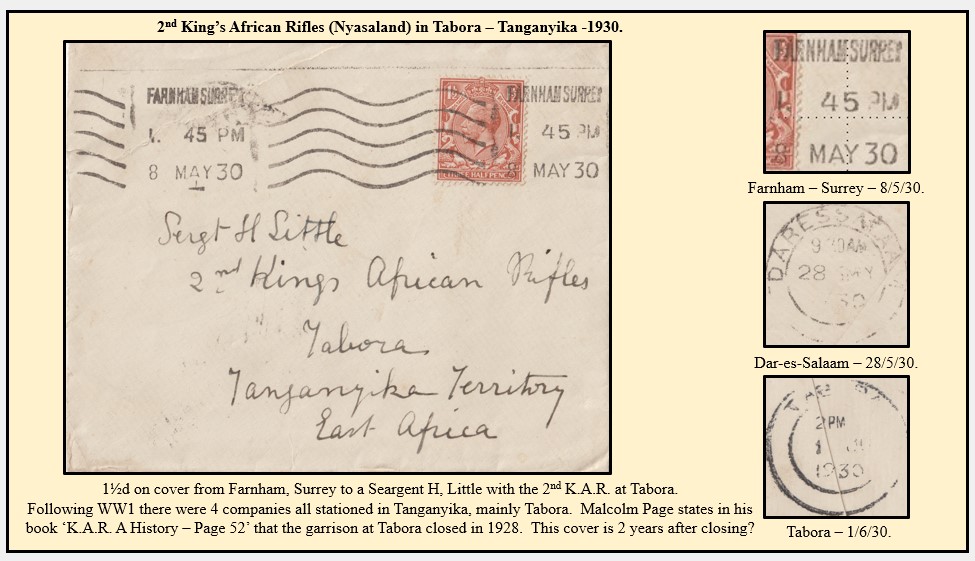 2nd King’s African Rifles (Nyasaland) in Tabora – Tanganyika -1930.
FARNHAM SURREY
45 PM
8 MAY 30
FARNHAM SURREY
45 PM
8 MAY 30
Sergt H Little
2nd Kings African Rifles
Tabora
Tanganyika Territory
East Africa
FARNHAM SURREY
45 PM
8 MAY 30
Farnham – Surrey – 8/5/30.
DARESSALAAM
AM
28
Dar-es-Salaam – 28/5/30.
2 PM
1930
Tabora – 1/6/30.
1½d on cover from Farnham, Surrey to a Seargent H, Little with the 2nd K.A.R. at Tabora.
Following WW1 there were 4 companies all stationed in Tanganyika, mainly Tabora. Malcolm Page states in his
book ‘K.A.R. A History – Page 52’ that the garrison at Tabora closed in 1928. This cover is 2 years after closing?